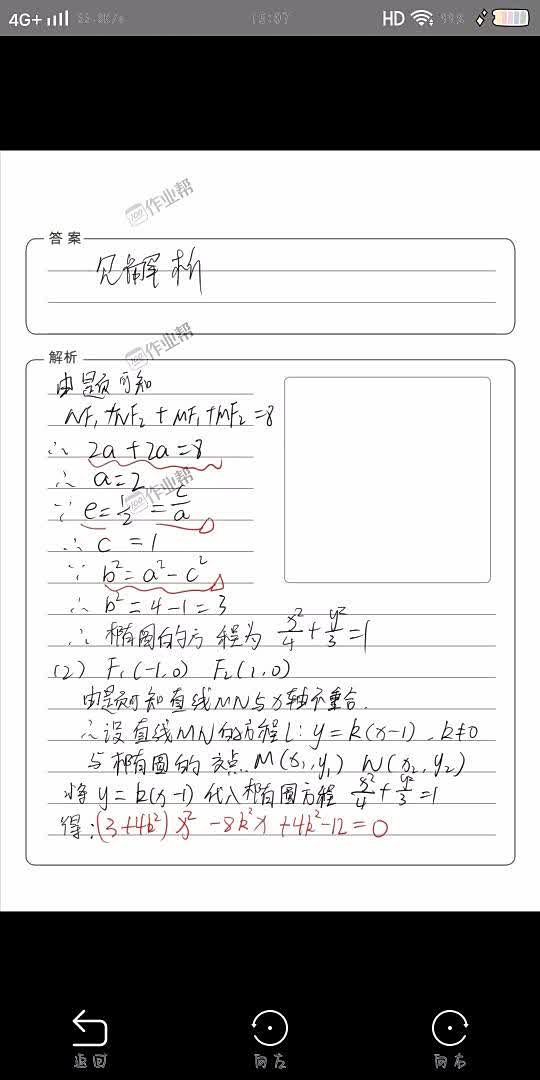 4G+
15:07
HD
99%
作业帮
答案
见解析
作业帮
解析
由题可知
NF₁+NF₂+MF₁+MF₂=8
∴ 2a+2a=8
∴ a=2
作业帮
∵ e=1/2=c/a
∴ c=1
∵ b²=a²-c²
∴ b²=4-1=3
∴ 椭圆的方程为 x²/4+y²/3=1
(2) F₁(-1,0) F₂(1,0)
由题可知直线MN与x轴不重合.
∴设直线MN的方程l: y=k(x-1), k≠0
与椭圆的交点 M(x₁,y₁) N(x₂,y₂)
将 y=k(x-1) 代入椭圆方程 x²/4+y²/3=1
得: (3+4k²)x²-8k²x+4k²-12=0
返回
向左
向右